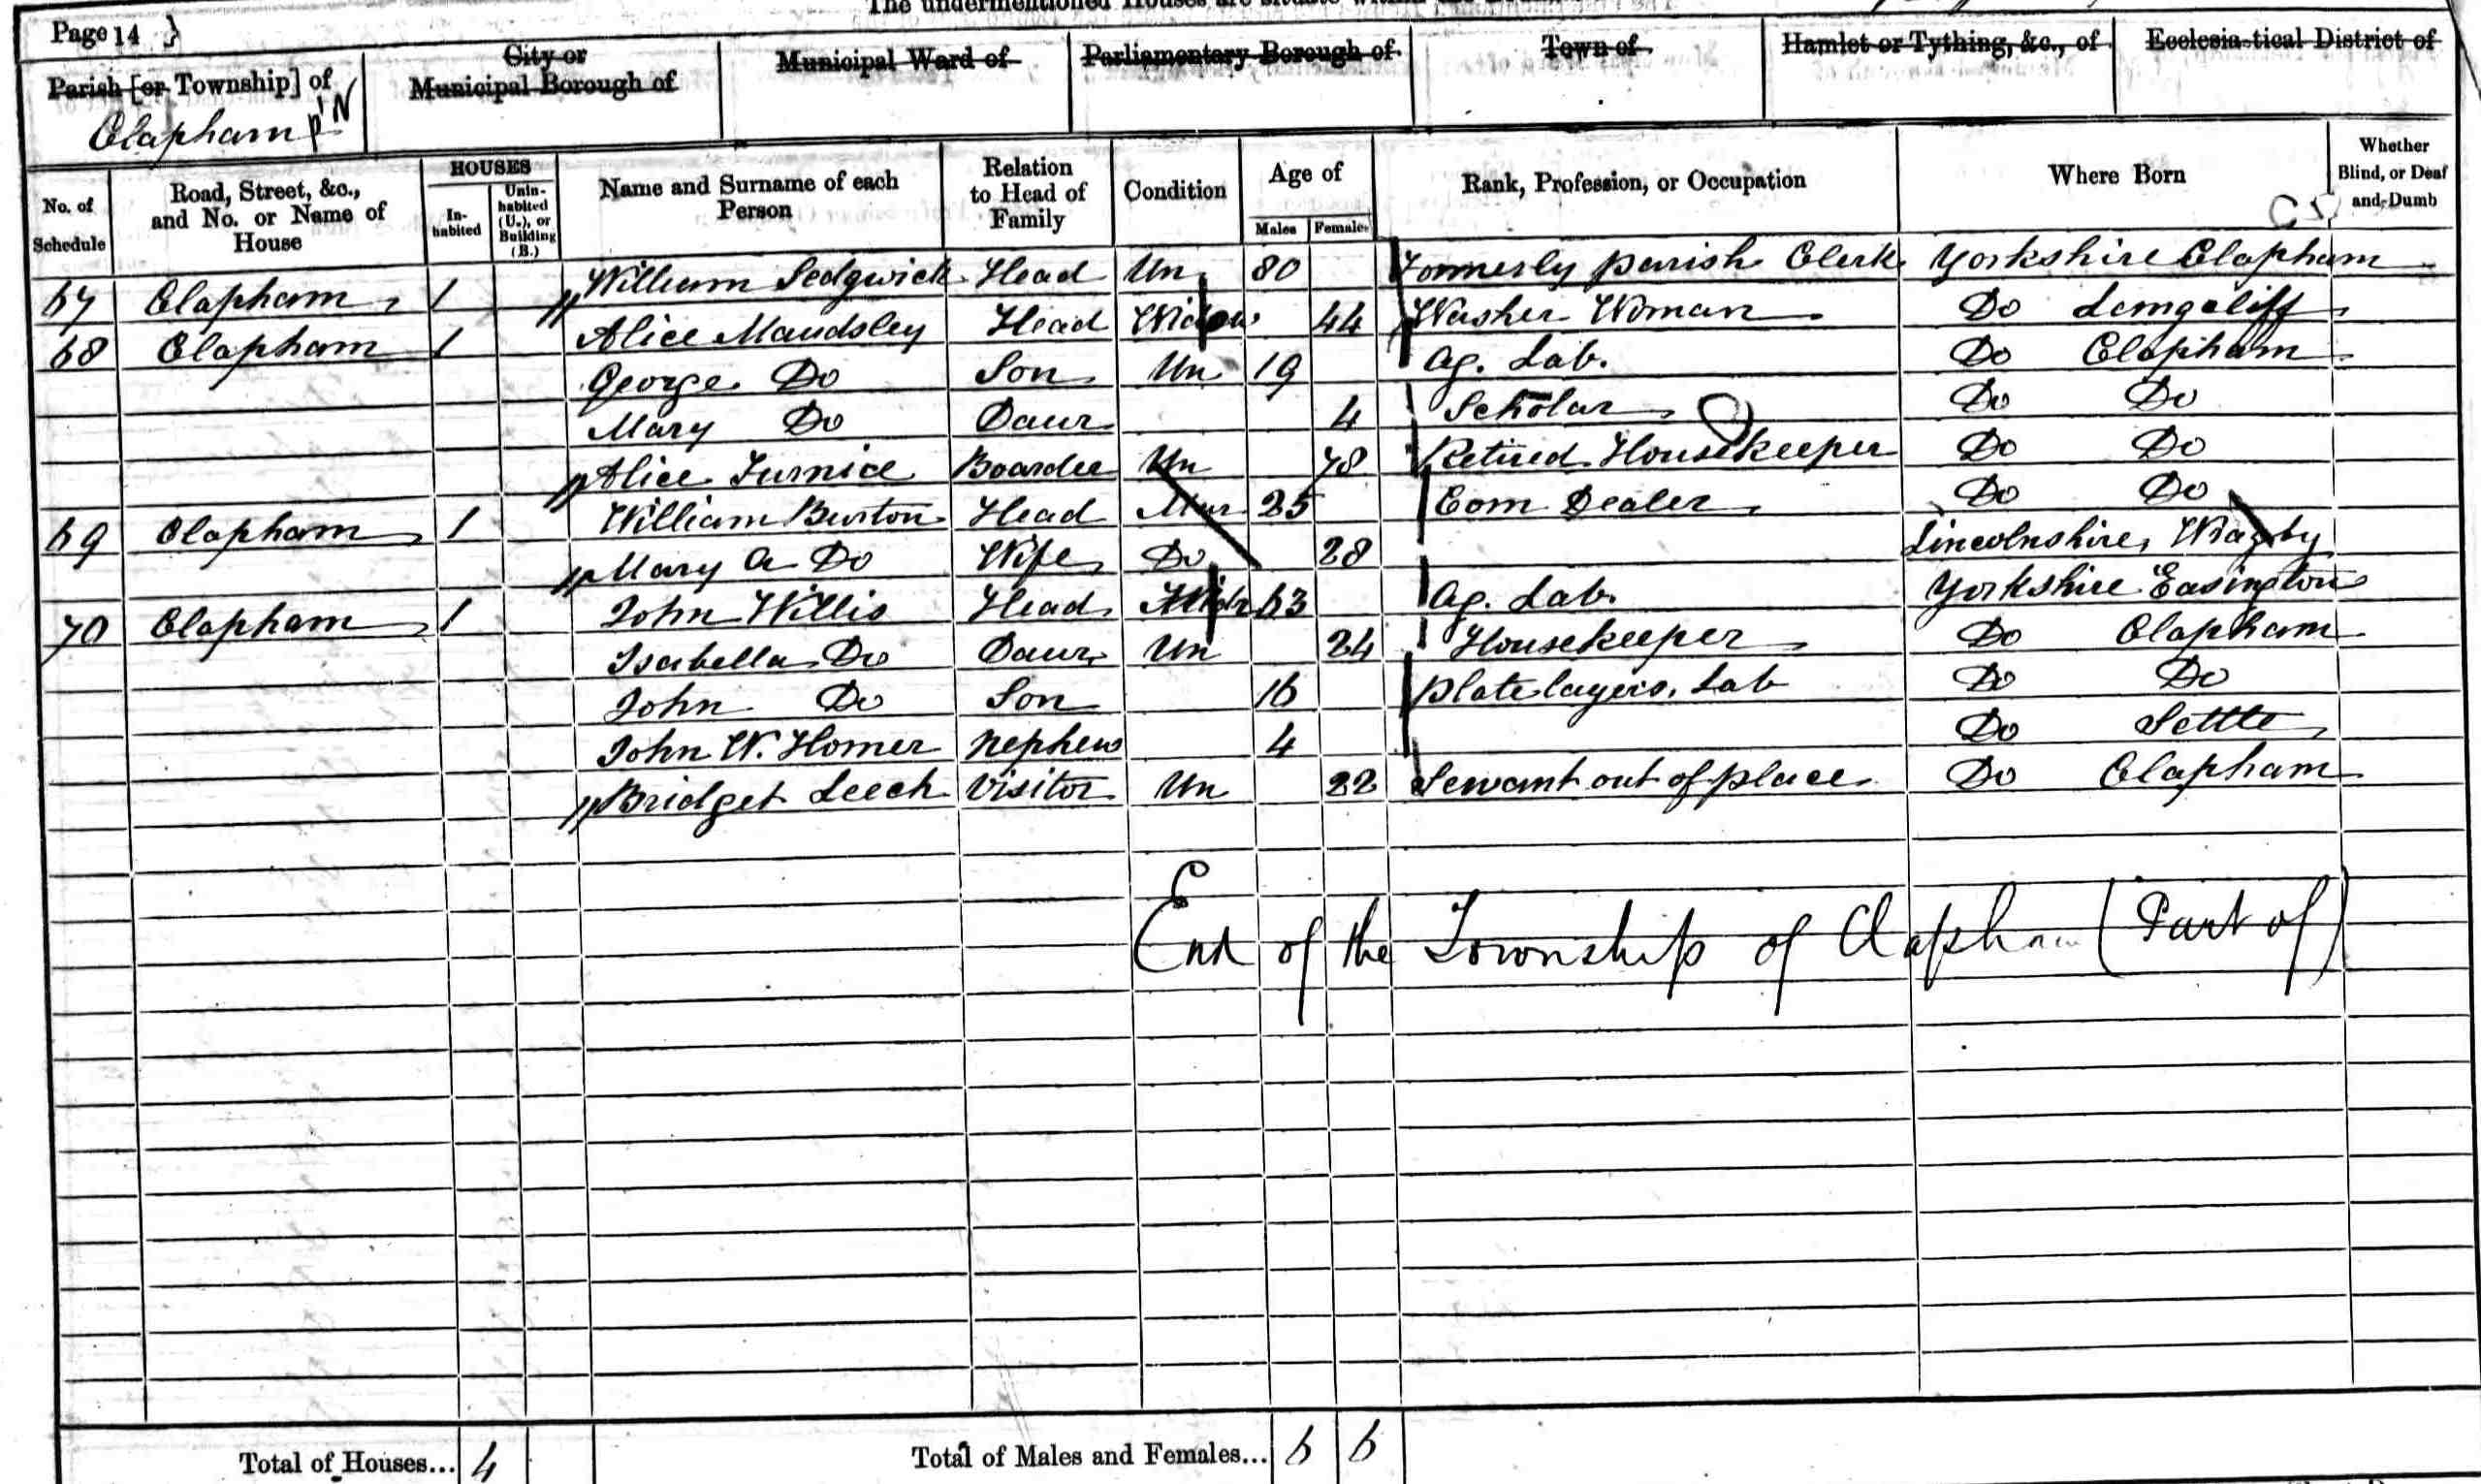 The undermentioned Houses are situate within the
Page 14 }
Parish [or Township] of
Clapham pt N
City or
Municipal Borough of
Municipal Ward of
Parliamentary Borough of
Town of
Hamlet or Tything, &c., of
Ecclesiastical District of
No. of Schedule
Road, Street, &c., and No. or Name of House
HOUSES
In-habited
Unin-habited (U.), or Building (B.)
Name and Surname of each Person
Relation to Head of Family
Condition
Age of
Males
Females
Rank, Profession, or Occupation
Where Born
Whether Blind, or Deaf and Dumb
67 Clapham 1 William Sedgwick Head Un 80 Formerly parish Clerk Yorkshire Clapham
68 Clapham 1 Alice Maudsley Head Widow 44 Washer Woman Do Langcliff
George Do Son Un 19 Ag. Lab. Do Clapham
Mary Do Daur 4 Scholar Do Do
Alice Furnice Boarder Un 78 Retired Housekeeper Do Do
69 Clapham 1 William Burton Head Mar 25 Corn Dealer Do Do
Mary A Do Wife Do 28 Lincolnshire, Wragby
70 Clapham 1 John Willis Head Widr 63 Ag. Lab. Yorkshire Easington
Isabella Do Daur Un 24 Housekeeper Do Clapham
John Do Son 16 Platelayers. Lab Do Do
John W. Homer Nephew 4 Do Settle
Bridget Leech Visitor Un 22 Servant out of place Do Clapham
End of the Township of Clapham (Part of)
Total of Houses... 4
Total of Males and Females... 6 6